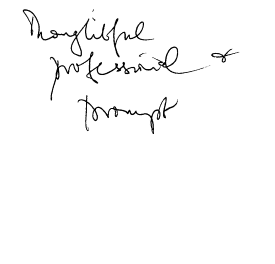 Thoughtful
professional &
prompt